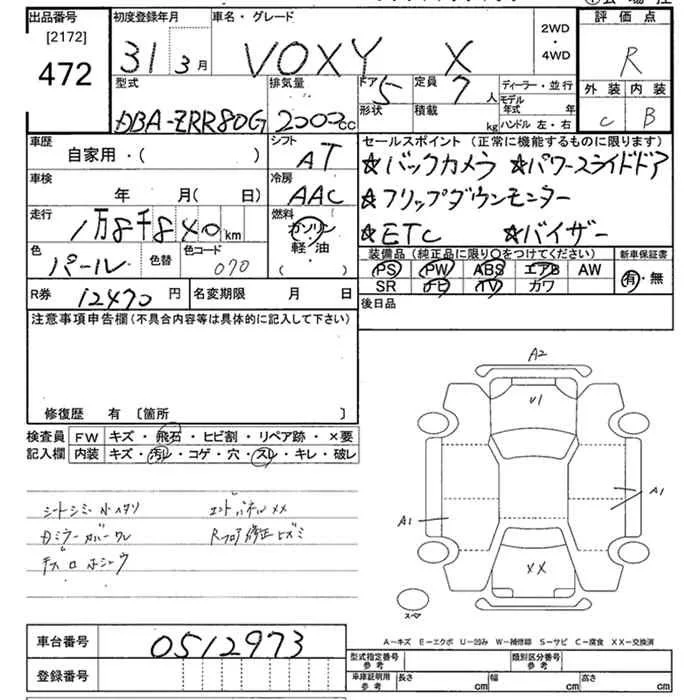 出品番号
[2172]
472
初度登録年月
31 3月
車名・グレード
VOXY X
2WD
・
4WD
評価点
R
外装 内装
C B
型式
DBA-ZRR80G
排気量
2000cc
ドア 5
形状
定員 7人
積載 kg
ディーラー・並行
モデル年式 年
ハンドル 左・右
車歴
自家用・( )
シフト
AT
車検
年 月(日)
冷房
AAC
走行
1万8千840km
燃料
ガソリン
軽油
( )
色
パール
色替
色コード
070
R券 12470円 名変期限 月 日
セールスポイント(正常に機能するものに限ります)
☆バックカメラ ☆パワースライドドア
☆フリップダウンモニター
☆ETC ☆バイザー
装備品(純正品に限り○をつけてください)
PS PW ABS エアB AW
SR ナビ TV カワ
新車保証書
有・無
後日品
注意事項申告欄(不具合内容等は具体的に記入して下さい)
修復歴 有 〔箇所 〕
検査員 FW キズ・飛石・ヒビ割・リペア跡・×要
記入欄 内装 キズ・汚レ・コゲ・穴・スレ・キレ・破レ
シートシミ
XX
Rフロア修正
A2
U1
A1
A1
XX
スペア
A-キズ E-エクボ U-凹み W-補修跡 S-サビ C-腐食 XX-交換済
車台番号 0512973
登録番号
型式指定番号
参考
類別区分番号
参考
車庫証明用
参考
長さ cm 幅 cm 高さ cm